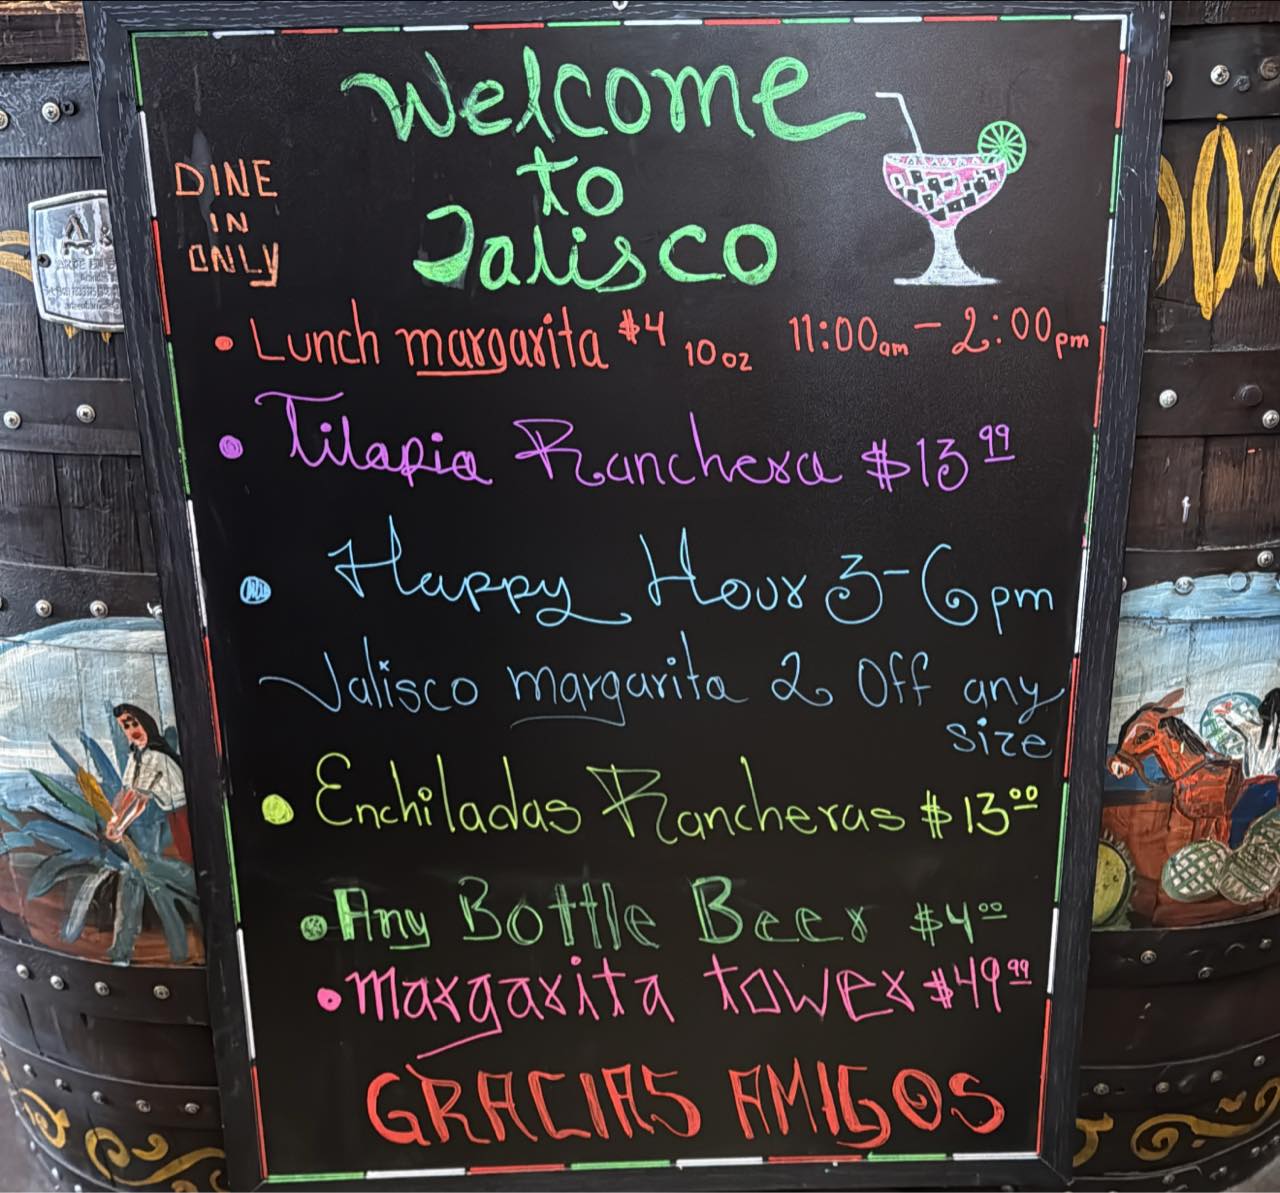 Welcome
to
Jalisco
DINE
IN
ONLY
• Lunch margarita $4 10oz 11:00am - 2:00pm
• Tilapia Ranchera $13.99
• Happy Hour 3-6pm
Jalisco margarita 2 Off any
size
• Enchiladas Rancheras $13.00
• Any Bottle Beer $4.00
• Margarita tower $49.99
GRACIAS AMIGOS